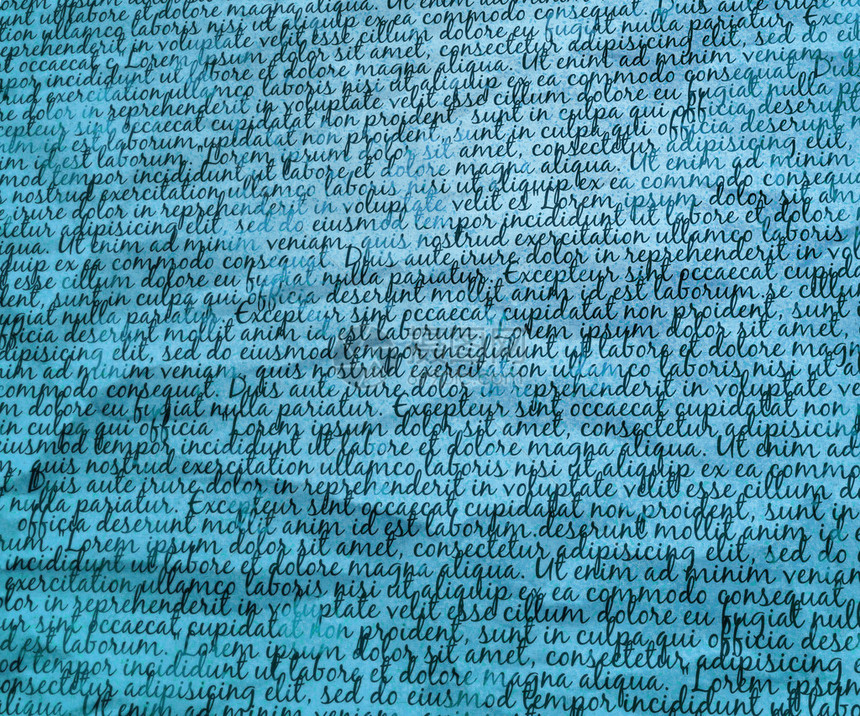 lorem ipsum dolor sit amet, consectetur adipisicing elit, sed do eiusmod
tempor incididunt ut labore et dolore magna aliqua. Ut enim ad minim veniam
exercitation ullamco laboris nisi ut aliquip ex ea commodo consequat. Duis aute irure dolor
reprehenderit in voluptate velit esse cillum dolore eu fugiat nulla pariatur. Excep
t occaecat c Lorem ipsum dolor sit amet, consectetur adipisicing elit, sed do ei
por incididunt ut labore et dolore magna aliqua. Ut enim ad minim veniam,
rud exercitation ullamco laboris nisi ut aliquip ex ea commodo consequat. Duis
re dolor in reprehenderit in voluptate velit esse cillum dolore eu fugiat nulla p
cepteur sint occaecat cupidatat non proident, sunt in culpa qui officia deserunt
im id est laborum, updatat non proident, sunt in culpa qui officia deserunt
im id est laborum. Lorem ipsum dolor sit amet, consectetur adipisicing elit,
mod tempor incididunt ut labore et dolore magna aliqua. Ut enim ad minim
nostrud exercitation ullamco laboris nisi ut aliquip ex ea commodo consequa
e irure dolor in reprehenderit in voluptate velit es Lorem ipsum dolor sit
tetur adipisicing elit, sed do eiusmod tempor incididunt ut labore et dolore
iqua. Ut enim ad minim veniam, quis nostrud exercitation ullamco laboris
quip ex ea commodo consequat. Duis aute irure dolor in reprehenderit in vol
esse cillum dolore eu fugiat nulla pariatur. Excepteur sint occaecat cupida
dent, sunt in culpa qui officia deserunt mollit anim id est laborum.se cillum
ugiat nulla pariatur. Excepteur sint occaecat cupidatat non proident, sunt
officia deserunt mollit anim id est laborum. Lorem ipsum dolor sit amet,
dipisicing elit, sed do eiusmod tempor incididunt ut labore et dolore magn
d minim veniam, quis nostrud exercitation ullamco laboris nisi ut al
commodo consequat. Duis aute irure dolor in reprehenderit in voluptate ve
m dolore eu fugiat nulla pariatur. Excepteur sint occaecat cupidatat non
in culpa qui officia. Lorem ipsum dolor sit amet, consectetur adipisicing
eiusmod tempor incididunt ut labore et dolore magna aliqua. Ut enim ad
m, quis nostrud exercitation ullamco laboris nisi ut aliquip ex ea commo
t. Duis aute irure dolor in reprehenderit in voluptate velit esse cillum d
nulla pariatur. Excepteur sint occaecat cupidatat non proident, sunt in
officia deserunt mollit anim id est laborum.deserunt mollit anim id e
rum. Lorem ipsum dolor sit amet, consectetur adipisicing elit, sed do
incididunt ut labore et dolore magna aliqua. Ut enim ad minim veniam
exercitation ullamco laboris nisi ut aliquip ex ea commodo consequat
olor in reprehenderit in voluptate velit esse cillum dolore eu fugiat null
ur sint occaecat cupidatat non proident, sunt in culpa qui officia dese
d est laborum. Lorem ipsum dolor sit amet, consectetur adipisicing e
od tempor incididunt ut labore et dolore magna aliqua. Lorem ipsum
onsectetur adipisicing elit, sed do eiusmod tempor incididunt ut labo
Ut enim ad minim veniam, quis nostrud